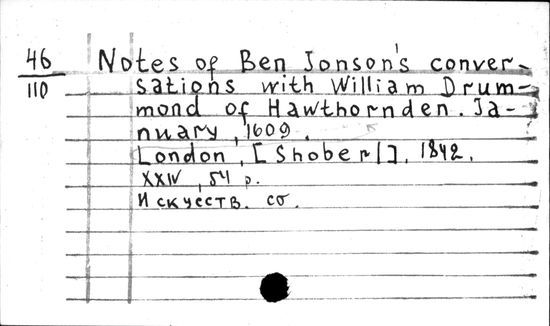 46
110
Notes of Ben Jonson's conver-
sations with William Drum-
mond of Hawthornden. Ja-
nuary, 1609.
London, [Shoberl], 1842.
XXIV, 54 p.
Искусств. сб.